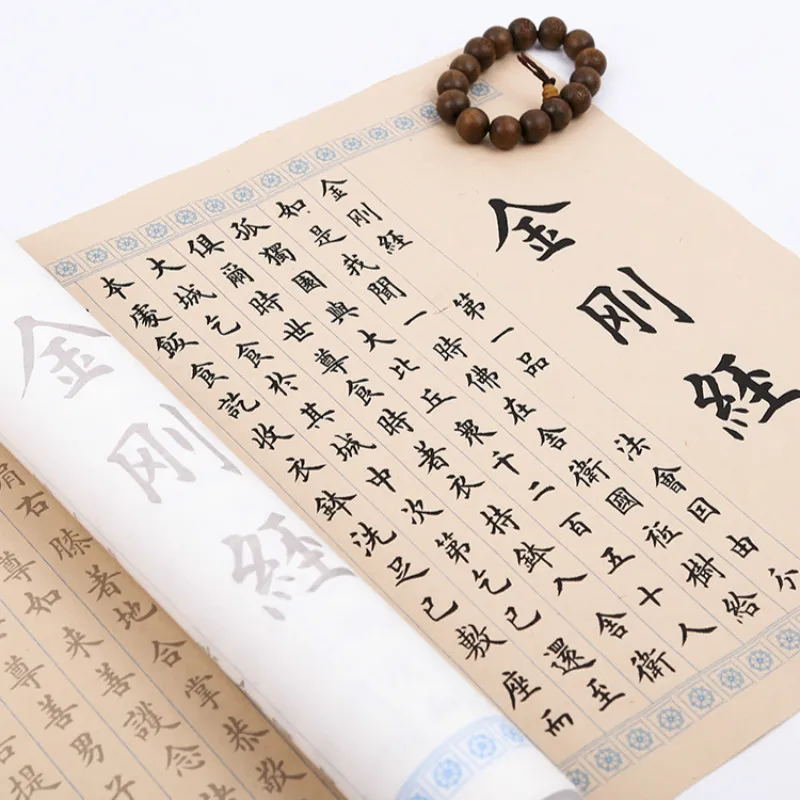 金刚經
金刚經 第一品 法會囙由分
如是我聞一時佛在舍衛國祗樹給
孤獨園與大比丘衆千二百五十人
俱爾時世尊食時著衣持鉢入舍衛
大城乞食於其城中次第乞已還至
本處飯食訖收衣鉢洗足已敷座而
金刚經
肩右膝著地合掌恭敬
尊如来善護念
尊善男子
提